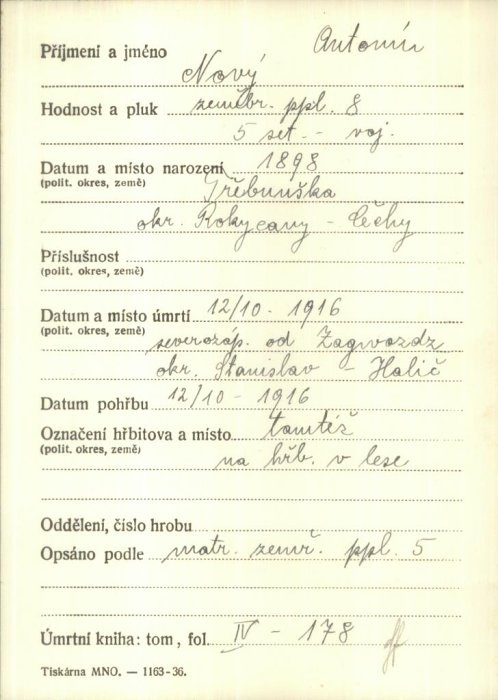 Příjmení a jméno Antonín
Nový
Hodnost a pluk zeměbr. ppl. 8
5 set. - voj.
Datum a místo narození 1898
(polit. okres, země) Třebnuška
okr. Rokycany - Čechy
Příslušnost
(polit. okres, země)
Datum a místo úmrtí 12/10 - 1916
(polit. okres, země) severozáp. od Zagwozdz
okr. Stanislav - Halič
Datum pohřbu 12/10 - 1916
Označení hřbitova a místo tamtéž
(polit. okres, země) na hřb. v lese
Oddělení, číslo hrobu
Opsáno podle matr. zemř. ppl. 5
Úmrtní kniha: tom, fol. IV - 178
Tiskárna MNO. — 1163-36.